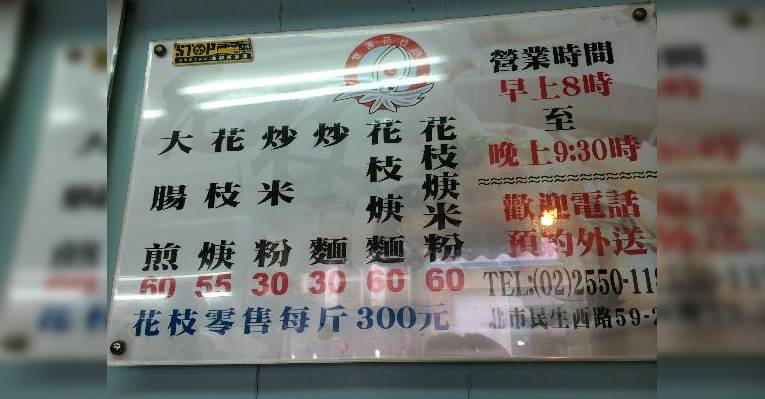 STOP
營業時間
早上8時
至
晚上9:30時
歡迎電話
預約外送
TEL:(02)2550-11
北市民生西路59-2
花枝焿米粉 60
花枝焿麵 60
炒麵 30
炒米粉 30
花枝焿 55
大腸煎 60
花枝零售每斤300元